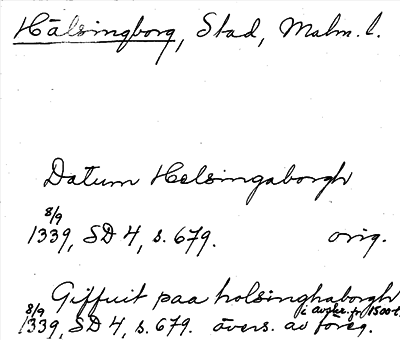 Hälsingborg, Stad, Malm. l.
Datum Helsingaborgh
8/9
1339, SD 4, s. 679. orig.
Giffuit paa holsinghaborgh
8/9 i avskr. fr. 1500-t.
1339, SD 4, s. 679. övers. av föreg.